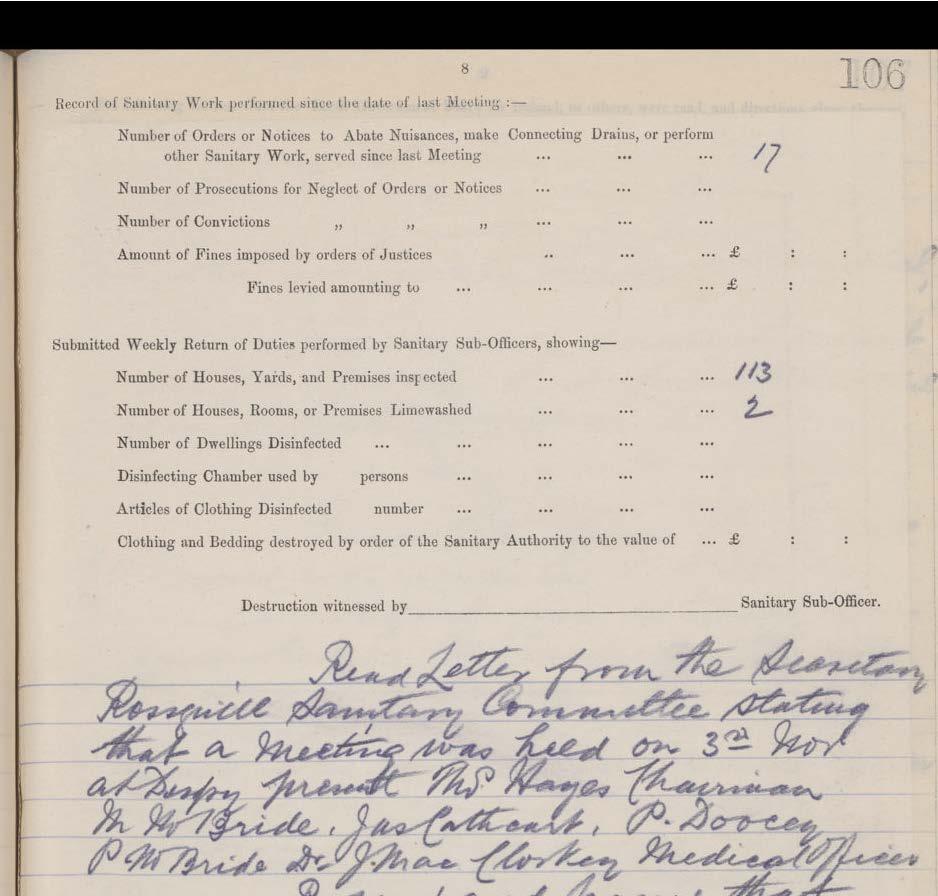 8
106
Record of Sanitary Work performed since the date of last Meeting :—
Number of Orders or Notices to Abate Nuisances, make Connecting Drains, or perform
other Sanitary Work, served since last Meeting ... ... ... 17
Number of Prosecutions for Neglect of Orders or Notices ... ... ...
Number of Convictions „ „ „ ... ... ...
Amount of Fines imposed by orders of Justices .. ... ... £ : :
Fines levied amounting to ... ... ... £ : :
Submitted Weekly Return of Duties performed by Sanitary Sub-Officers, showing—
Number of Houses, Yards, and Premises inspected ... ... ... 113
Number of Houses, Rooms, or Premises Limewashed ... ... ... 2
Number of Dwellings Disinfected ... ... ... ... ...
Disinfecting Chamber used by persons ... ... ... ...
Articles of Clothing Disinfected number ... ... ... ...
Clothing and Bedding destroyed by order of the Sanitary Authority to the value of ... £ : :
Destruction witnessed by Sanitary Sub-Officer.
Read Letter from the Secretary
Rossguill Sanitary Committee stating
that a Meeting was held on 3rd Nov
at present Thos Hayes Chairman
M McBride, Jas Cathcart, P. Doocey
P McBride Dr J Mac Closkey Medical Officer